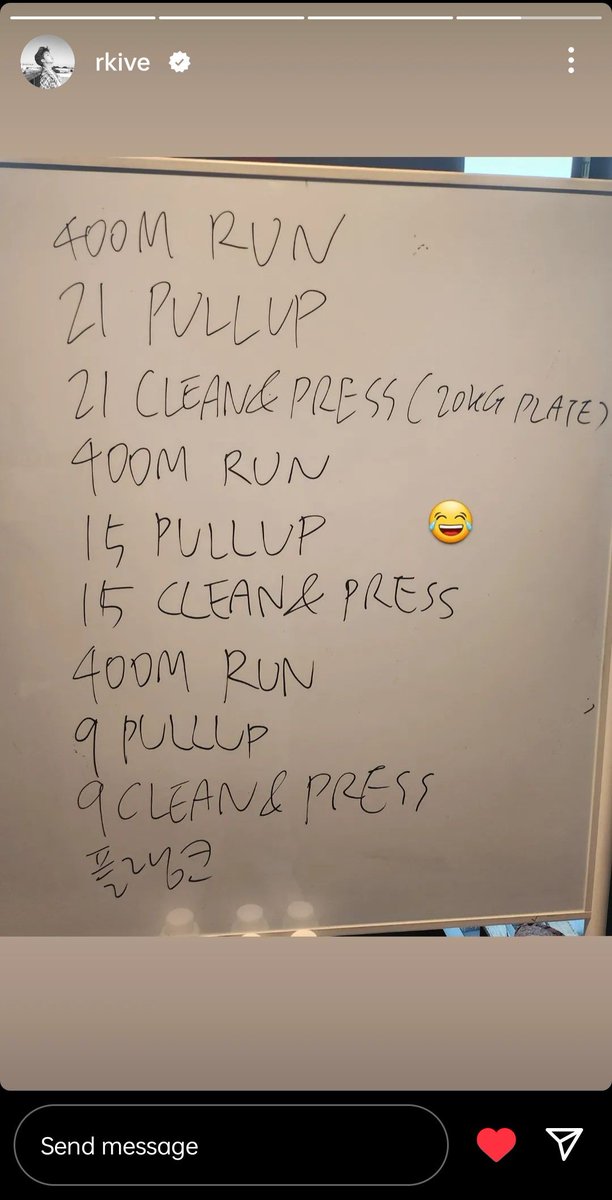 rkive
400M RUN
21 PULLUP
21 CLEAN & PRESS (20KG PLATE)
400M RUN
15 PULLUP
15 CLEAN & PRESS
400M RUN
9 PULLUP
9 CLEAN & PRESS
플랭크
Send message